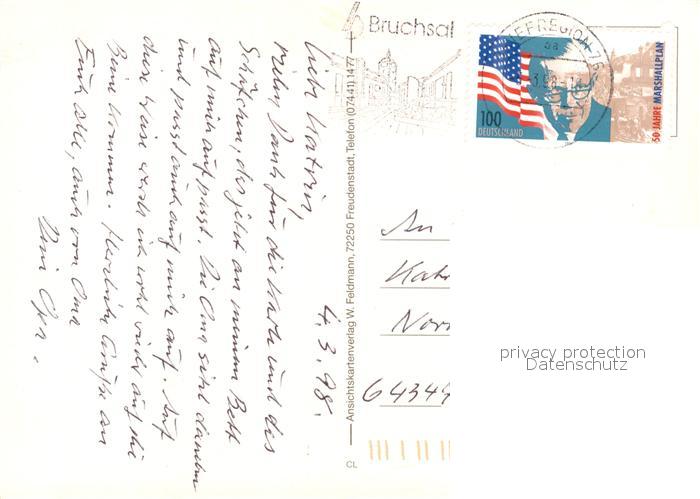 Bruchsal
BRIEFREGION 7
100
DEUTSCHLAND
50 JAHRE MARSHALLPLAN
4.3.98.
Liebe Katrin,
vielen Dank für die Karte und das
Schäfchen, das jetzt an meinem Bett
auf mich aufpasst. Die Oma sitzt daneben
und passt auch auf mich auf. Auf
diese Weise werde ich wohl wieder auf die
Beine kommen. Herzliche Grüße an
Euch alle, auch von Oma
Dein Opa.
Ansichtskartenverlag W. Feldmann, 72250 Freudenstadt, Telefon (07441) 1477
CL
An
Kat
Nor
64349
privacy protection
Datenschutz